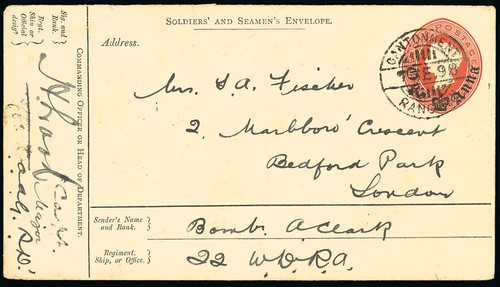 SOLDIERS' AND SEAMEN'S ENVELOPE.
POSTAGE
CANTONMENT
E.98
RANG
Anna
Address.
Mrs. S. A. Fischer
2. Marlboro' Crescent
Bedford Park
London
Sender's Name and Rank.
Bomb. A Clark
Regiment, Ship, or Office.
22 W.D.R.A.
COMMANDING OFFICER OR HEAD OF DEPARTMENT.
Sig. and Rank.
Regt. Ship or Official desigⁿ